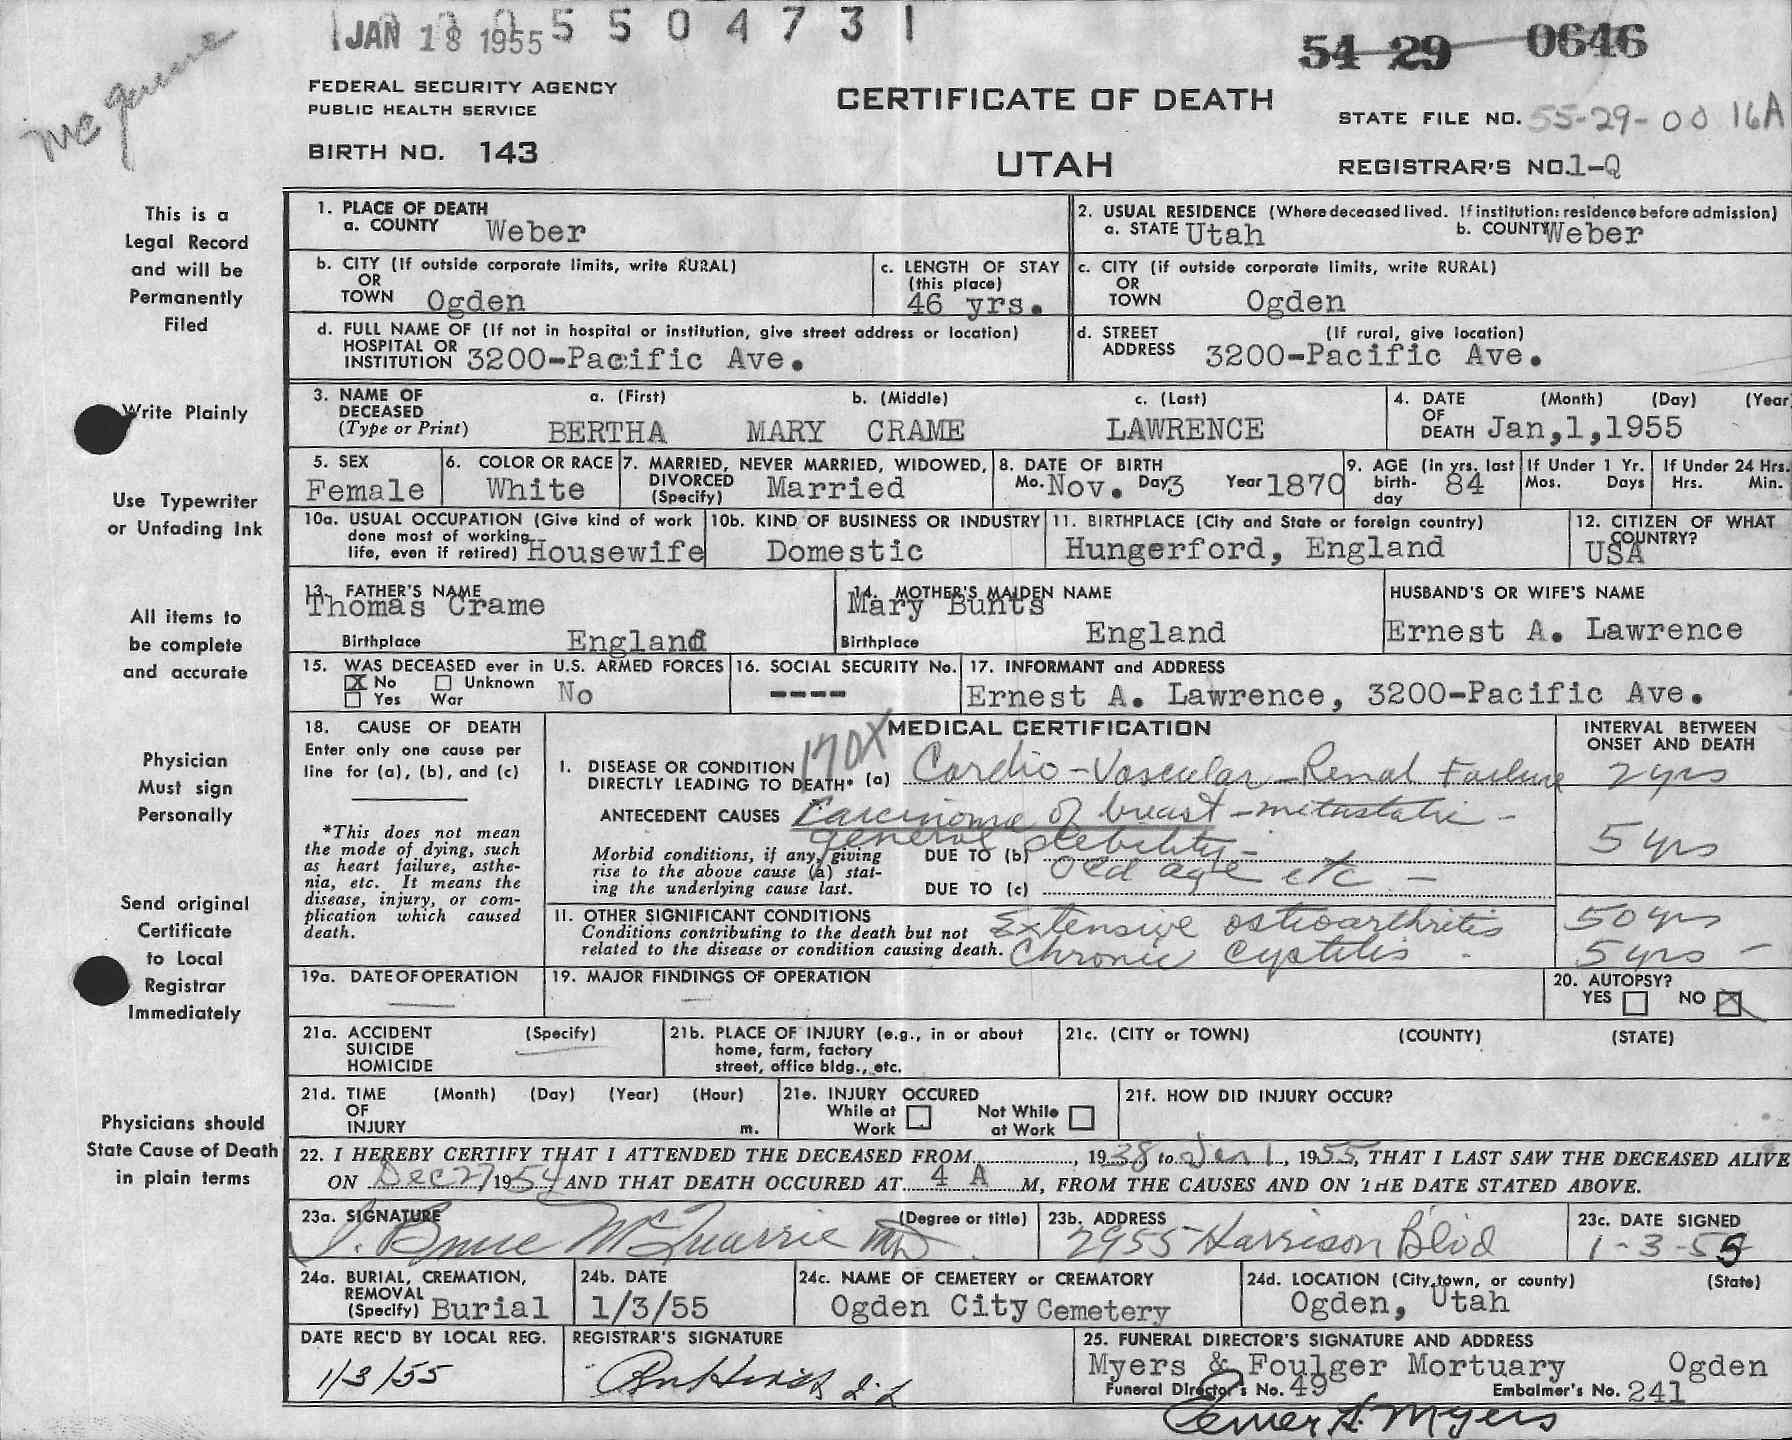 JAN 18 1955 5 5 0 4 7 3 1
54 29 0646
FEDERAL SECURITY AGENCY
PUBLIC HEALTH SERVICE
CERTIFICATE OF DEATH
STATE FILE NO. 55-29-00 16A
BIRTH NO. 143
UTAH
REGISTRAR'S NO. 1-Q
This is a
Legal Record
and will be
Permanently
Filed
Write Plainly
Use Typewriter
or Unfading Ink
All items to
be complete
and accurate
Physician
Must sign
Personally
Send original
Certificate
to Local
Registrar
Immediately
Physicians should
State Cause of Death
in plain terms
1. PLACE OF DEATH
a. COUNTY Weber
2. USUAL RESIDENCE (Where deceased lived. If institution: residence before admission)
a. STATE Utah b. COUNTY Weber
b. CITY (If outside corporate limits, write RURAL)
OR
TOWN Ogden
c. LENGTH OF STAY
(this place)
46 yrs.
c. CITY (if outside corporate limits, write RURAL)
OR
TOWN Ogden
d. FULL NAME OF (If not in hospital or institution, give street address or location)
HOSPITAL OR
INSTITUTION 3200-Pacific Ave.
d. STREET (If rural, give location)
ADDRESS 3200-Pacific Ave.
3. NAME OF a. (First) b. (Middle) c. (Last)
DECEASED
(Type or Print) BERTHA MARY CRAME LAWRENCE
4. DATE (Month) (Day) (Year
OF
DEATH Jan,1,1955
5. SEX
Female
6. COLOR OR RACE
White
7. MARRIED, NEVER MARRIED, WIDOWED,
DIVORCED
(Specify) Married
8. DATE OF BIRTH
Mo. Nov. Day 3 Year 1870
9. AGE (in yrs. last
birth-
day 84
If Under 1 Yr.
Mos. Days
If Under 24 Hrs.
Hrs. Min.
10a. USUAL OCCUPATION (Give kind of work
done most of working
life, even if retired) Housewife
10b. KIND OF BUSINESS OR INDUSTRY
Domestic
11. BIRTHPLACE (City and State or foreign country)
Hungerford, England
12. CITIZEN OF WHAT
COUNTRY?
USA
13. FATHER'S NAME
Thomas Crame
Birthplace England
14. MOTHER'S MAIDEN NAME
Mary Bunts
Birthplace England
HUSBAND'S OR WIFE'S NAME
Ernest A. Lawrence
15. WAS DECEASED ever in U.S. ARMED FORCES
X No Unknown No
Yes War
16. SOCIAL SECURITY No.
----
17. INFORMANT and ADDRESS
Ernest A. Lawrence, 3200-Pacific Ave.
18. CAUSE OF DEATH
Enter only one cause per
line for (a), (b), and (c)
*This does not mean
the mode of dying, such
as heart failure, asthe-
nia, etc. It means the
disease, injury, or com-
plication which caused
death.
170X
MEDICAL CERTIFICATION
INTERVAL BETWEEN
ONSET AND DEATH
I. DISEASE OR CONDITION
DIRECTLY LEADING TO DEATH* (a) Cardio-Vascular-Renal Failure 2 yrs
ANTECEDENT CAUSES Carcinoma of breast - metastatic - 5 yrs
general debility -
Morbid conditions, if any, giving DUE TO (b)
rise to the above cause (a) stat-
ing the underlying cause last. DUE TO (c) Old age etc -
II. OTHER SIGNIFICANT CONDITIONS
Conditions contributing to the death but not
related to the disease or condition causing death.
Extensive osteoarthritis 50 yrs
Chronic Cystitis - 5 yrs -
19a. DATE OF OPERATION
19. MAJOR FINDINGS OF OPERATION
20. AUTOPSY?
YES NO X
21a. ACCIDENT (Specify)
SUICIDE
HOMICIDE
21b. PLACE OF INJURY (e.g., in or about
home, farm, factory
street, office bldg., etc.
21c. (CITY or TOWN) (COUNTY) (STATE)
21d. TIME (Month) (Day) (Year) (Hour)
OF
INJURY m.
21e. INJURY OCCURED
While at Not While
Work at Work
21f. HOW DID INJURY OCCUR?
22. I HEREBY CERTIFY THAT I ATTENDED THE DECEASED FROM, 1938, to Jan 1, 1955, THAT I LAST SAW THE DECEASED ALIVE
ON Dec 27, 1954 AND THAT DEATH OCCURED AT 4 A M, FROM THE CAUSES AND ON THE DATE STATED ABOVE.
23a. SIGNATURE (Degree or title)
J. Bruce McQuarrie MD
23b. ADDRESS
2955 Harrison Blvd
23c. DATE SIGNED
1-3-55
24a. BURIAL, CREMATION,
REMOVAL
(Specify) Burial
24b. DATE
1/3/55
24c. NAME OF CEMETERY or CREMATORY
Ogden City Cemetery
24d. LOCATION (City, town, or county) (State)
Ogden, Utah
DATE REC'D BY LOCAL REG.
1/3/55
REGISTRAR'S SIGNATURE
25. FUNERAL DIRECTOR'S SIGNATURE AND ADDRESS
Myers & Foulger Mortuary Ogden
Funeral Director's No. 49 Embalmer's No. 241
Myers